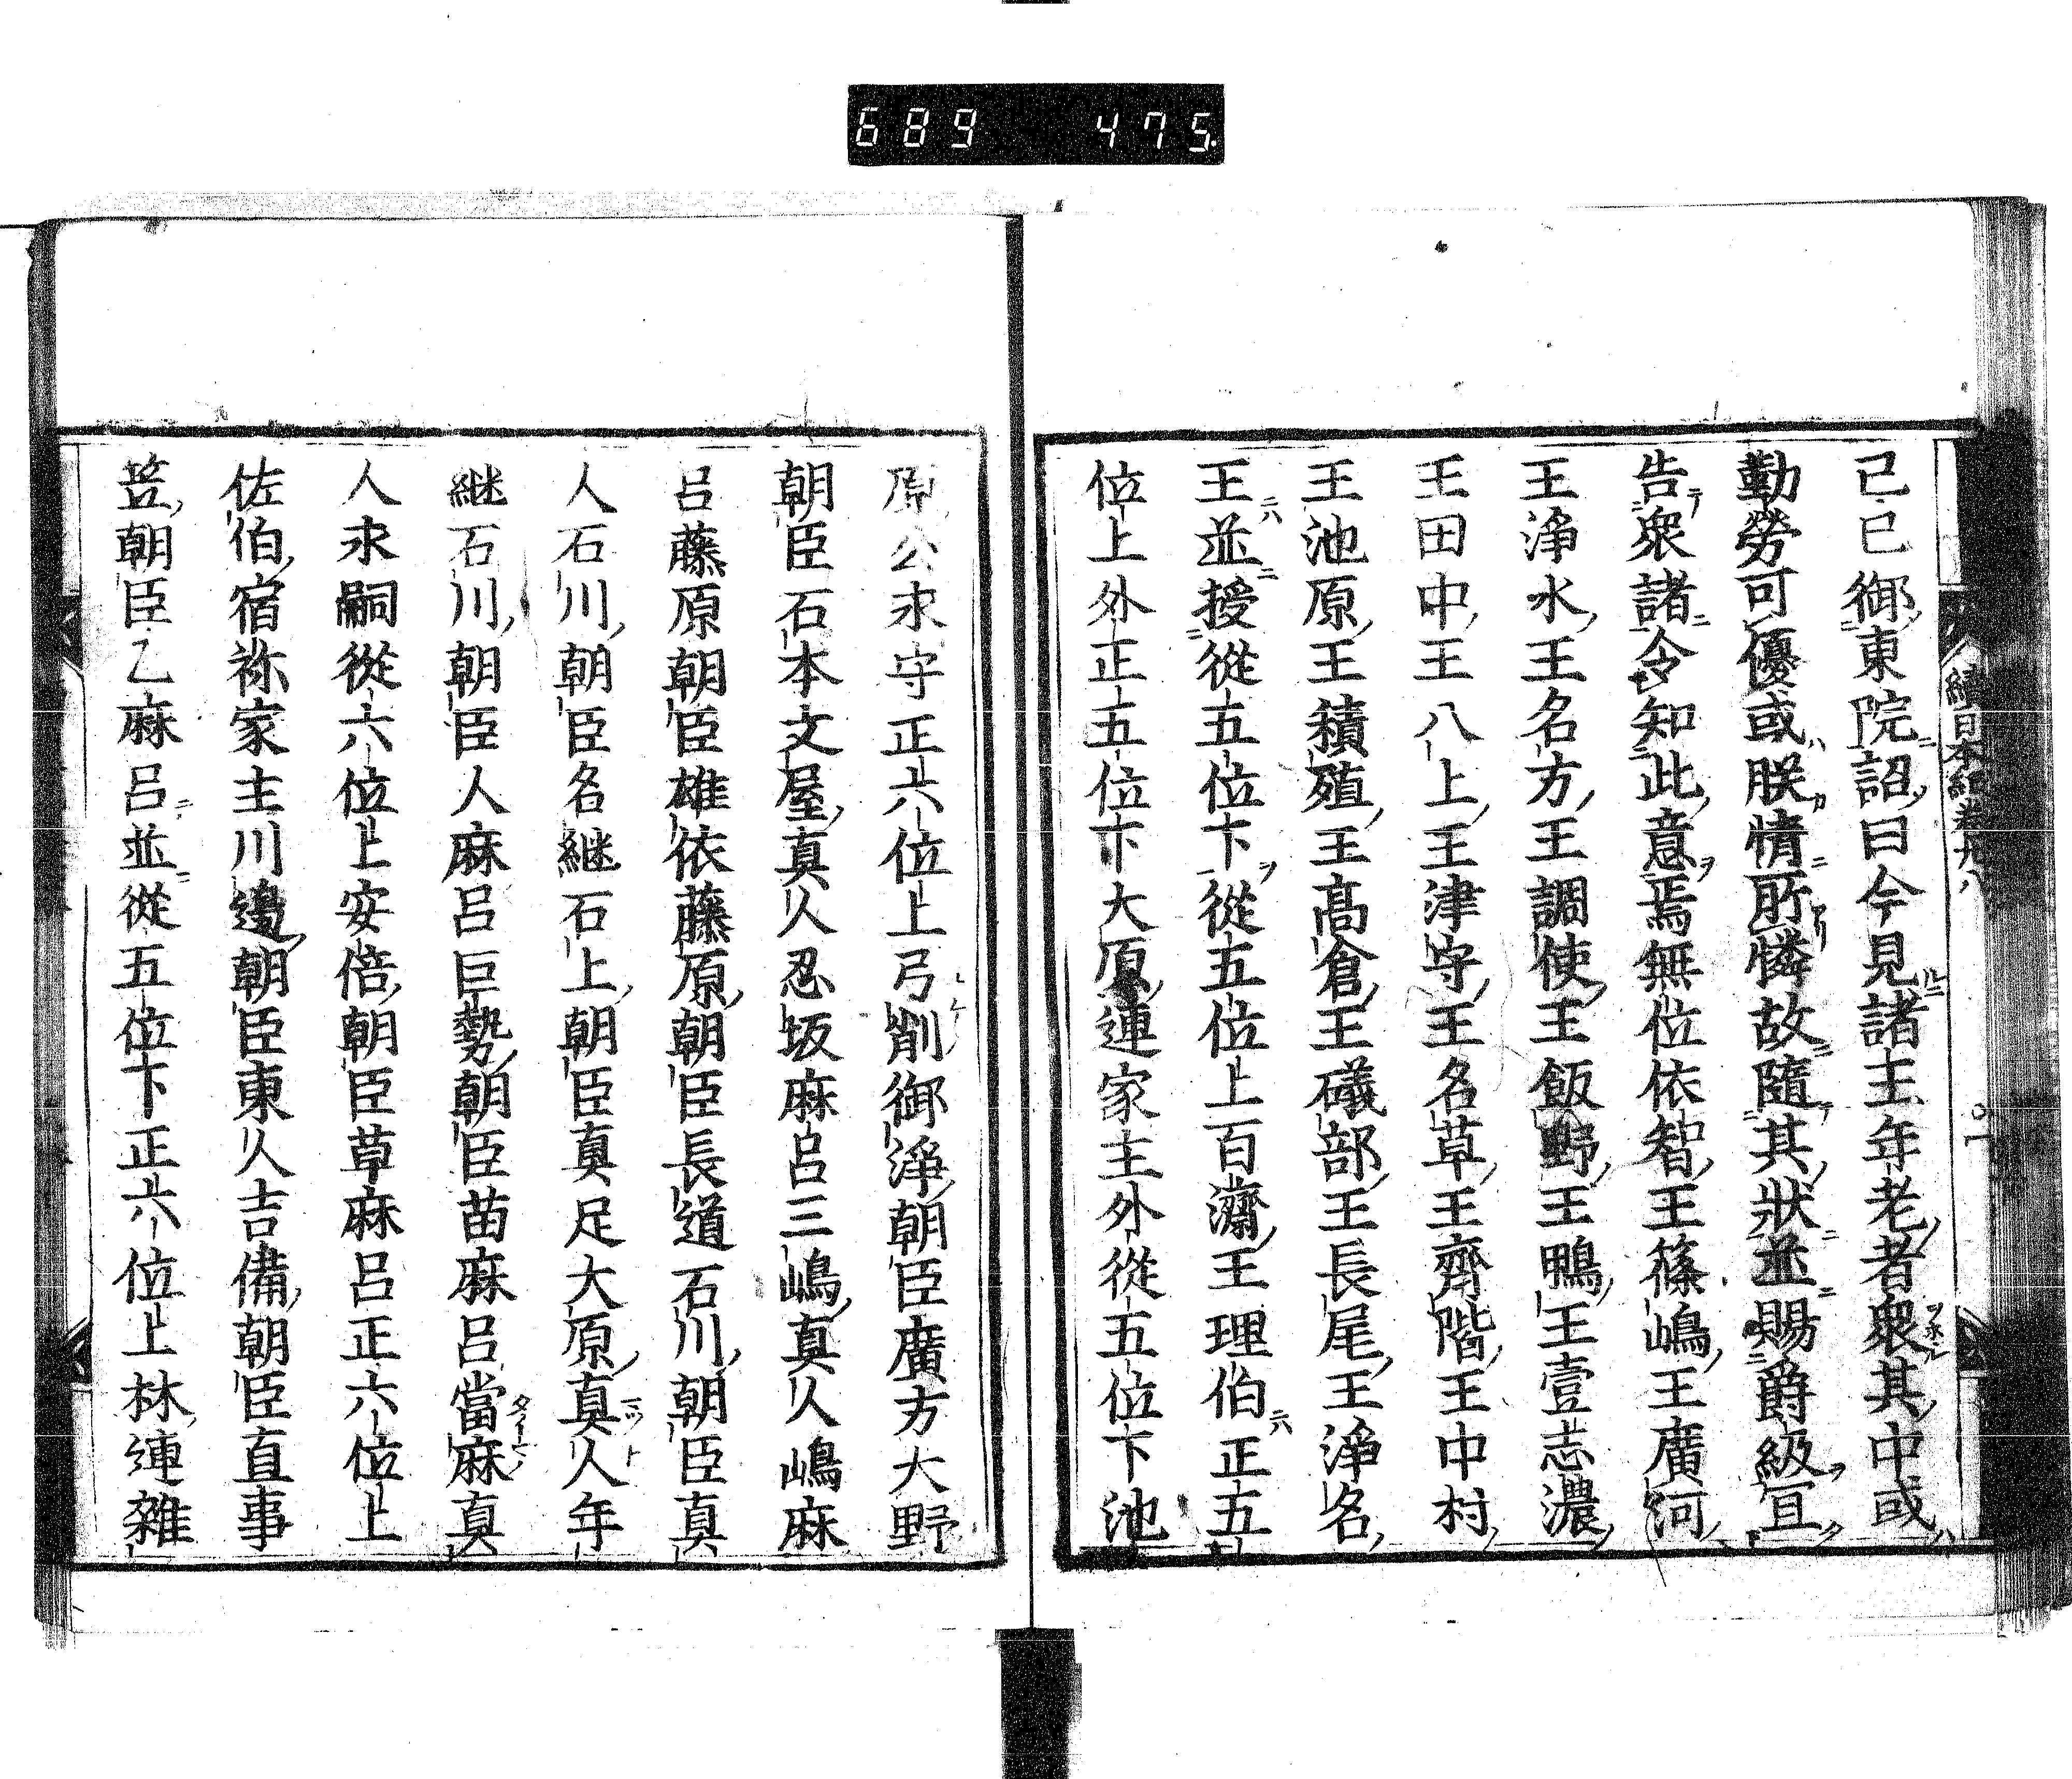 689 475
續日本紀卷廿八
己巳御東院詔曰今見諸王年老者衆其中或
勤勞可優或朕情所憐故隨其狀並賜爵級冝
告衆諸令知此意焉無位依智王篠嶋王廣河
王浄水王名方王調使王飯野王鴨王壹志濃
王田中王八上王津守王名草王齊階王中村
王池原王積殖王髙倉王礒部王長尾王浄名
王並授從五位下從五位上百濟王理伯正五
位上外正五位下大原連家主外從五位下池
原公永守正六位上弓削御浄朝臣廣方大野
朝臣石本文屋真人忍坂麻呂三嶋真人嶋麻
呂藤原朝臣雄依藤原朝臣長道石川朝臣真
人石川朝臣名継石上朝臣真足大原真人年
継石川朝臣人麻呂巨勢朝臣苗麻呂當麻真
人永嗣從六位上安倍朝臣草麻呂正六位上
佐伯宿祢家主川邊朝臣東人吉備朝臣直事
笠朝臣乙麻呂並從五位下正六位上林連雜